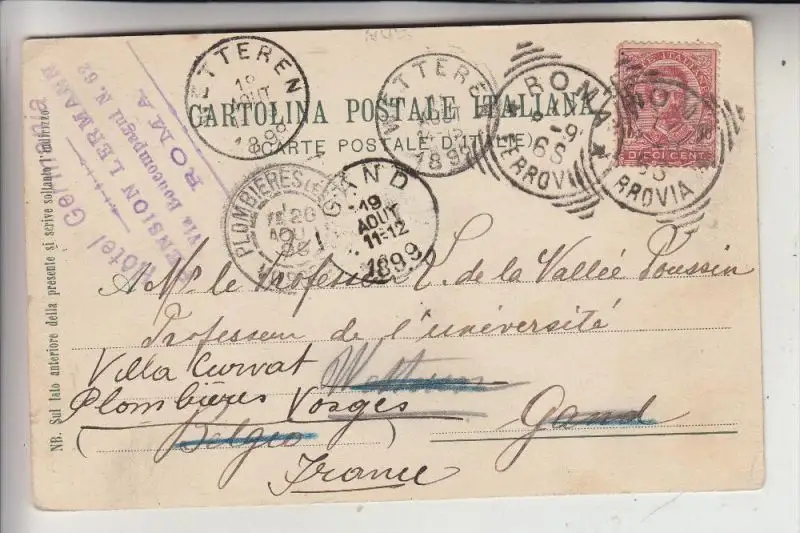 CARTOLINA POSTALE ITALIANA
(CARTE POSTALE D'ITALIE)
NB. Sul lato anteriore della presente si scrive soltanto l'indirizzo.
Hôtel Germania
PENSION LERMANN
ROMA
Via Boncompagni N. 62
WETTEREN
18
AOUT
1899
WETTEREN
1899
ROMA
FERROVIA
ROMA
FERROVIA
DIECI CENT
PLOMBIÈRES
GAND
19
AOUT
11-12
1899
A Mr le Professeur C. de la Vallée Poussin
Professeur de l'université
Villa Curvat Wetteren
Plombières Vosges Gand
(Belgio)
France